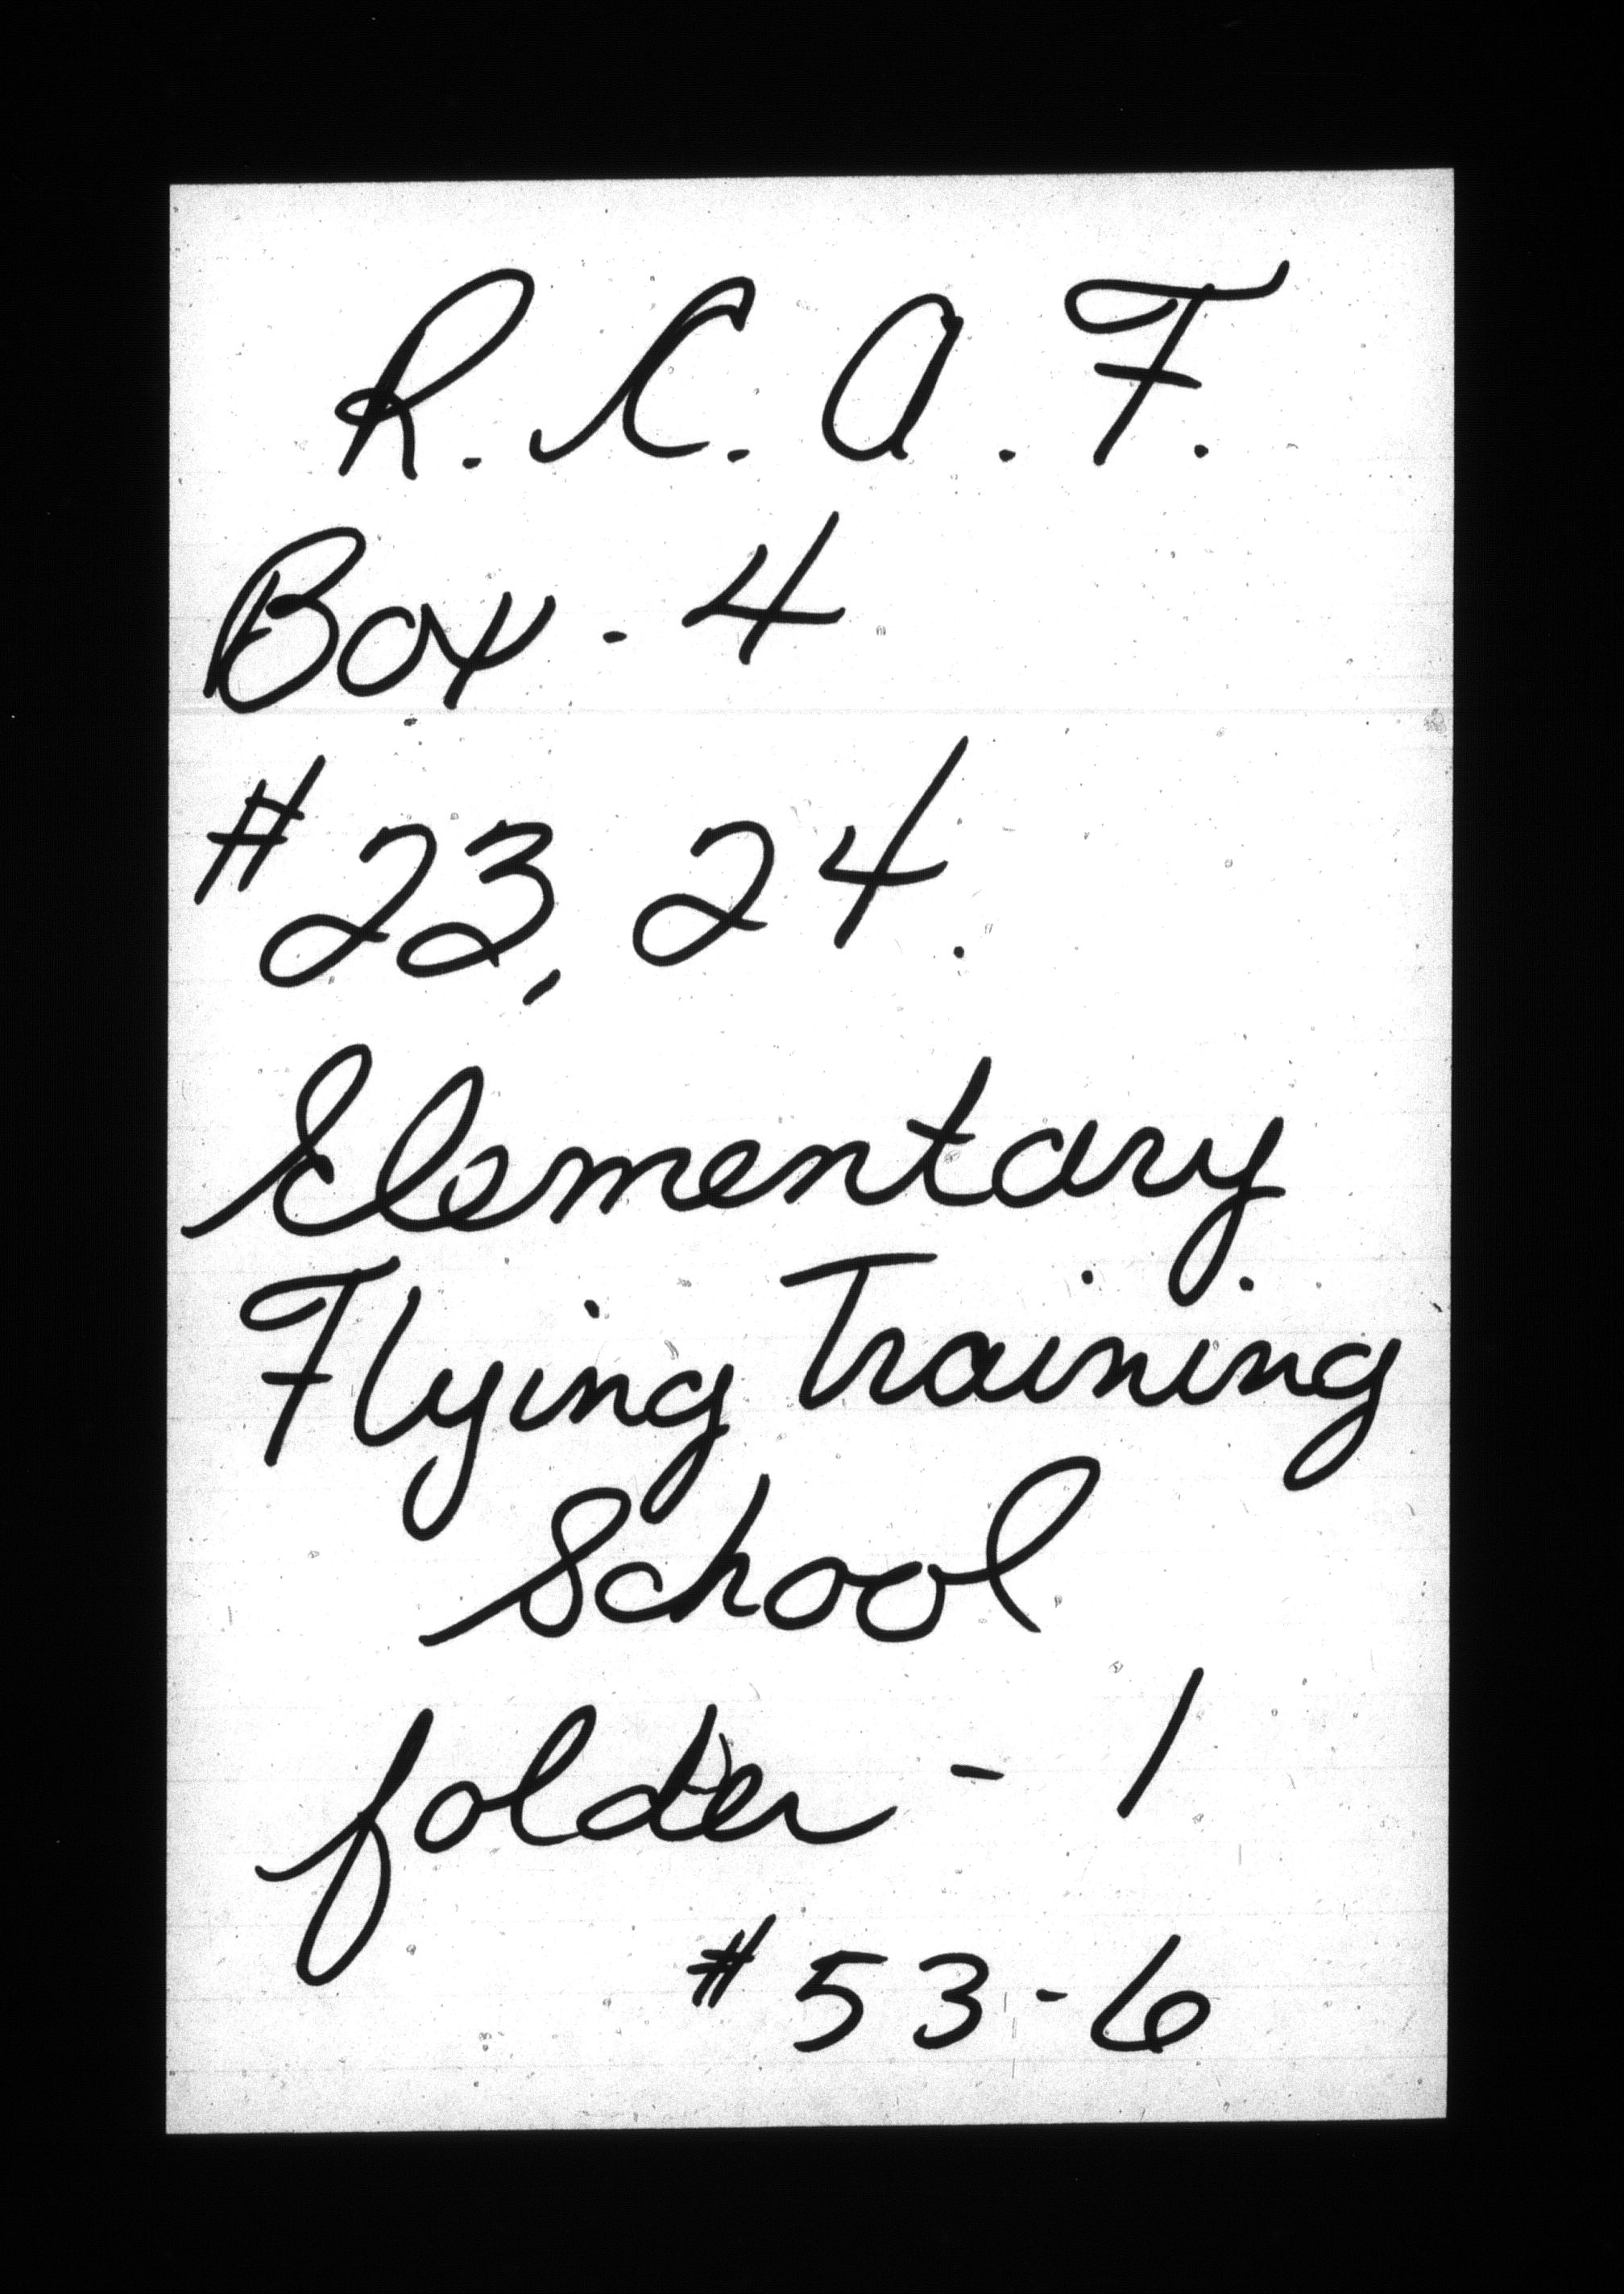 R.C.A.F.
Box - 4
# 23, 24.
Elementary
Flying Training
School
folder - 1
# 53-6